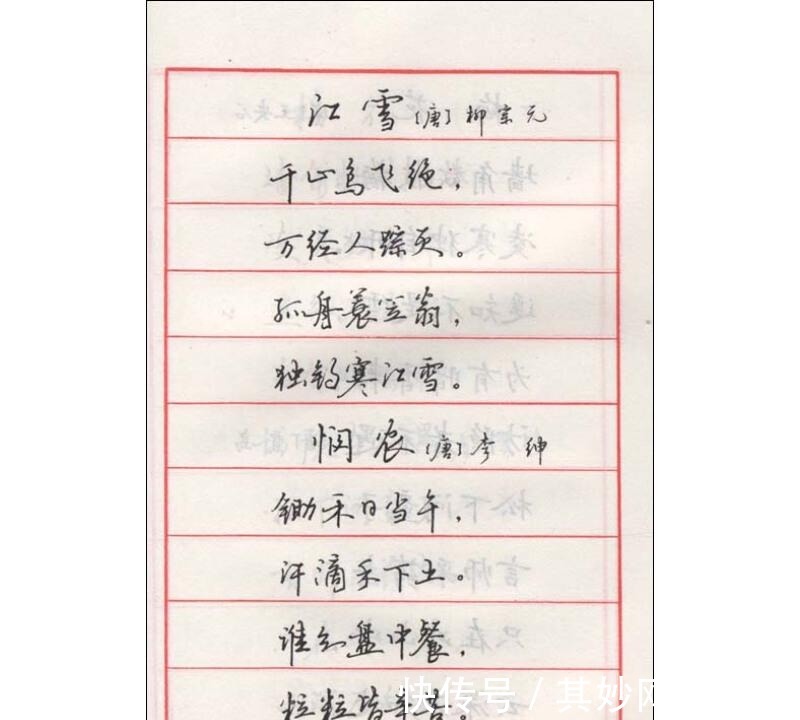 江雪〔唐〕柳宗元
千山鸟飞绝，
万径人踪灭。
孤舟蓑笠翁，
独钓寒江雪。
悯农〔唐〕李绅
锄禾日当午，
汗滴禾下土。
谁知盘中餐，
粒粒皆辛苦。
快传号/其妙网